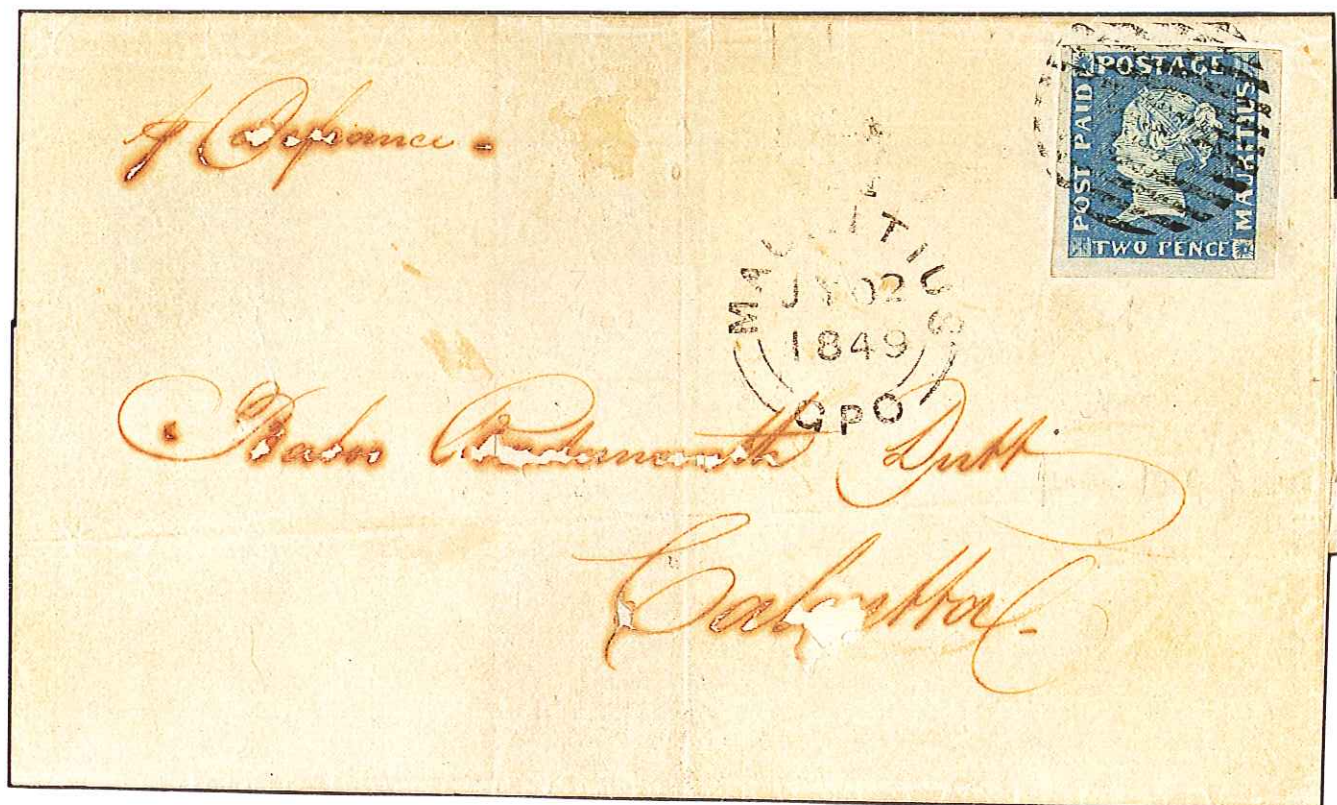 POSTAGE
POST PAID
MAURITIUS
TWO PENCE
Defiance
MAURITIUS
JY 02
1849
GPO
Baboo Dutt
Calcutta